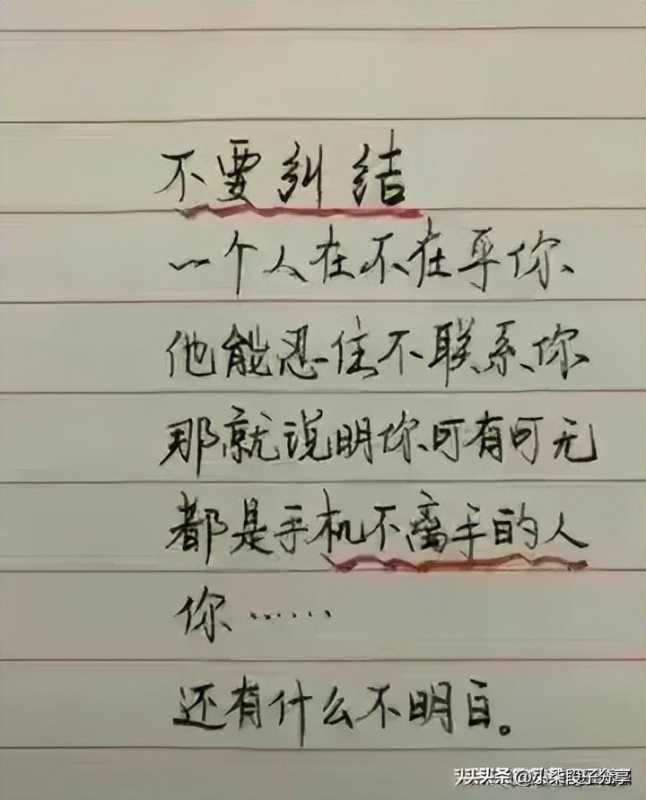 不要纠结
一个人在不在乎你
他能忍住不联系你
那就说明你可有可无
都是手机不离手的人
你……
还有什么不明白。
头条 @小柒段子分享